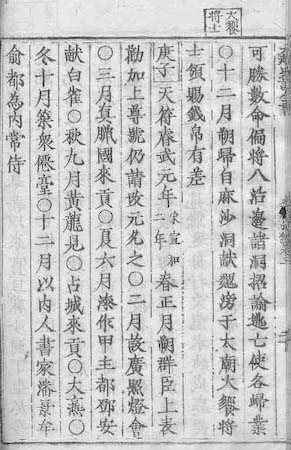 大饗
將士
可勝數命偏將八沿邊諸洞招諭逃亡使各歸業
○十二月朔帰自麻沙洞献馘滂于太廟大饗將
士領賜錢帛有差
庚子天符睿武元年宋宣和二年春正月朔群臣上表
勸加上尊號仍請改元允之○二月設廣照燈會
○三月真臘國來貢○夏六月漆作甲圭都鄧安
献白雀○秋九月黃龍見○占城來貢○大燕○
冬十月築衆僊臺○十二月以內人書家潘景牟
俞都為內常侍